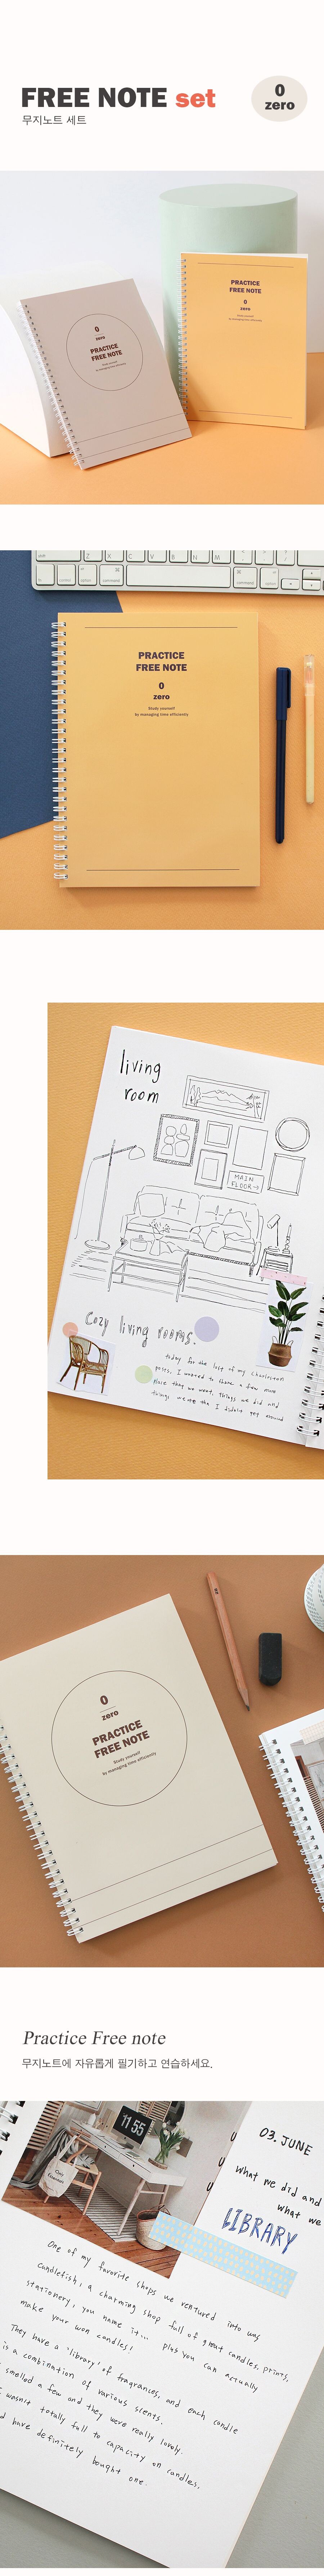 FREE NOTE set
무지노트 세트
0
zero
0
zero
PRACTICE
FREE NOTE
PRACTICE
FREE NOTE
0
zero
Study yourself
by managing time efficiently
PRACTICE
FREE NOTE
0
zero
Study yourself
by managing time efficiently
living
room
MAIN
FLOOR→
Cozy living rooms.
today for the last of my Charleston
posts, I wanted to share a few more
place they we went, things we did and
things we ate the I didn't get around
0
zero
PRACTICE
FREE NOTE
Study yourself
by managing time efficiently
Practice Free note
무지노트에 자유롭게 필기하고 연습하세요.
11 55
03. JUNE
What we did and
what we
LIBRARY
One of my favorite shops we ventured into was
Candlefish, a charming shop full of great candles, prints,
stationery, you name it... plus you can actually
make your won candles!
They have a 'library' of fragrances, and each candle
is a combination of various scents.
smelled a few and they were really lovely.
wasn't totally full to capacity on candles,
d have definitely bought one.